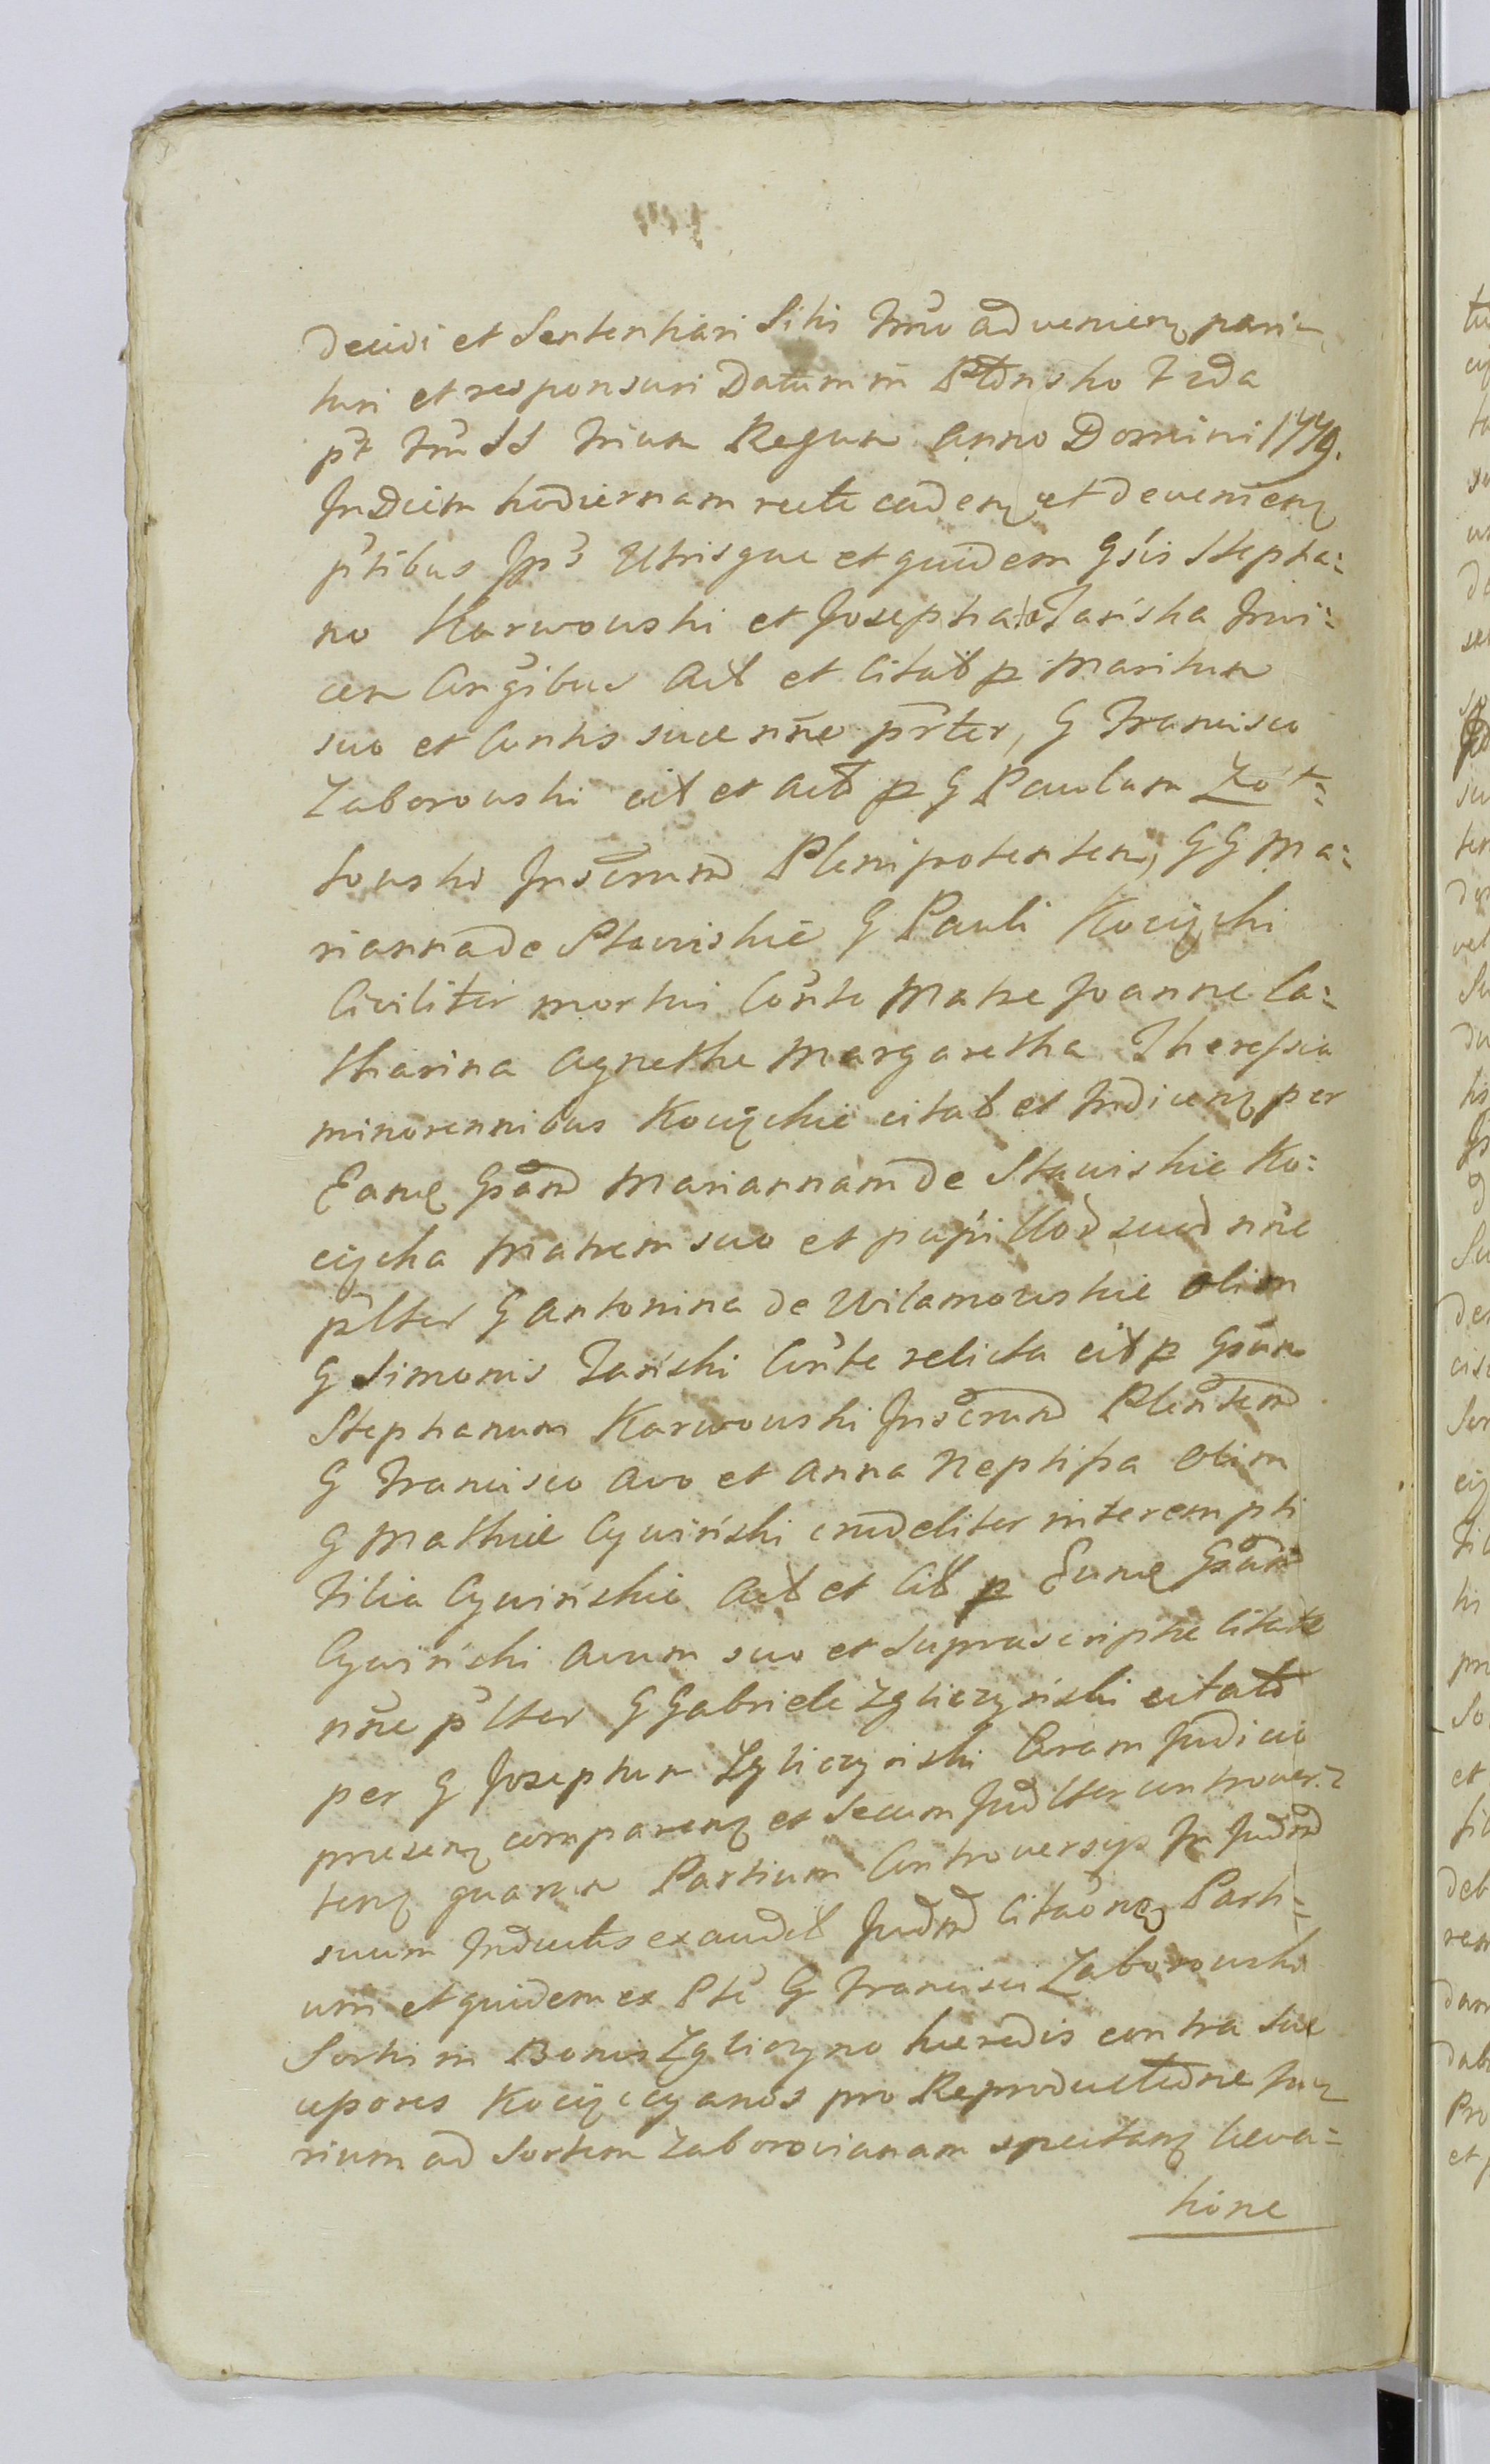 decidi et sententiari Sitis trno advenienꝫ pari=
turi et responsuri Datum in Płonsko F 2da
pt trm SS trium Regum Anno Domini 1779.
In diem hodiernam recte cadenꝫ et devenienꝫ
ptibus Ipś Utrisque et quidem Gsis Stepha:
no Karwowski et Josepha de Tańska Invi:
cem Congibus Act et Citat p Maritum
suo et Contis suæ nne prter, G Francisco
Zaborowski cit et Act p G Paulum Zół=
towski Inscrum Plenipotentem, GG Ma:
rianna de Stawiskie G Pauli Kocięcki
Civiliter mortui Conte Matre Joanne Ca:
tharina Agnethe Margaretha Theressia
minorennibus Kocięckie citat et Indicenꝫ per
Eamꝗ Gsam Mariannam de Stawiskie Ko:
cięcka Matrem suo et pupillor suor nne
plter G Antonina de Wilamowskie olim
G Simonis Tański Conte relicta cit p Gsum
Stephanum Karwowski Inscrum Plentem
G Francisco Avo et Anna Neptissa olim
G Mathiæ Cywiński crudeliter interempti
Filia Cywińskie Act et Cit p Eumꝗ Gsum
Cywiński Avum suo et Suprascriptæ Citatæ
nne plter G Gabriele Zgliczyński citato
per G Josephum Zgliczyński Coram Judicio
præsenꝫ comparenꝫ et Secum Judlter controver=
tenꝫ quarum Partium Controversys In Judm
suum Inductis exaudit Judm Citaonꝫ Parti=
um et quidem ex Pte G Francisci Zaborowski
Sortis in Bonis Zgliczyno hæredis contra Suc
cessores Kocięccyanos pro Reproductione Jur
rium ad Sortem Zaborovianam spectanꝫ Lieva=
tione